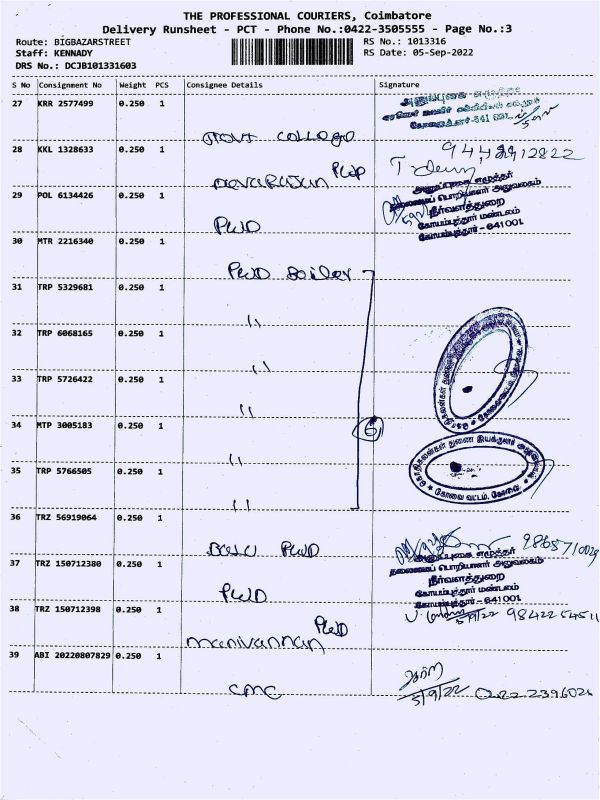 THE PROFESSIONAL COURIERS, Coimbatore
Delivery Runsheet - PCT - Phone No.:0422-3505555 - Page No.:3
Route: BIGBAZARSTREET
RS No.: 1013316
Staff: KENNADY
RS Date: 05-Sep-2022
DRS No.: DCJB101331603
S No Consignment No Weight PCS Consignee Details Signature
27 KRR 2577499 0.250 1
Govt College
28 KKL 1328633 0.250 1
9442212822
Devarajan PWD
29 POL 6134426 0.250 1
அனுப்புகை எழுத்தர்
தலைமைப் பொறியாளர் அலுவலகம்
நீர்வளத்துறை
கோயம்புத்தூர் மண்டலம்
கோயம்புத்தூர் - 641001
PWD
30 MTR 2216340 0.250 1
PWD Boiler
31 TRP 5329681 0.250 1
"
32 TRP 6068165 0.250 1
"
33 TRP 5726422 0.250 1
"
34 MTP 3005183 0.250 1
6
"
35 TRP 5766505 0.250 1
கோவை வட்டம், கோவை.
"
36 TRZ 56919064 0.250 1
PWD
37 TRZ 150712380 0.250 1
அனுப்புகை எழுத்தர்
தலைமைப் பொறியாளர் அலுவலகம்
நீர்வளத்துறை
கோயம்புத்தூர் மண்டலம்
கோயம்புத்தூர் - 641001
PWD
38 TRZ 150712398 0.250 1
5/9/22 9842254511
Manivannan PWD
39 ABI 20220807829 0.250 1
CMC
5/9/22 0422 2396026